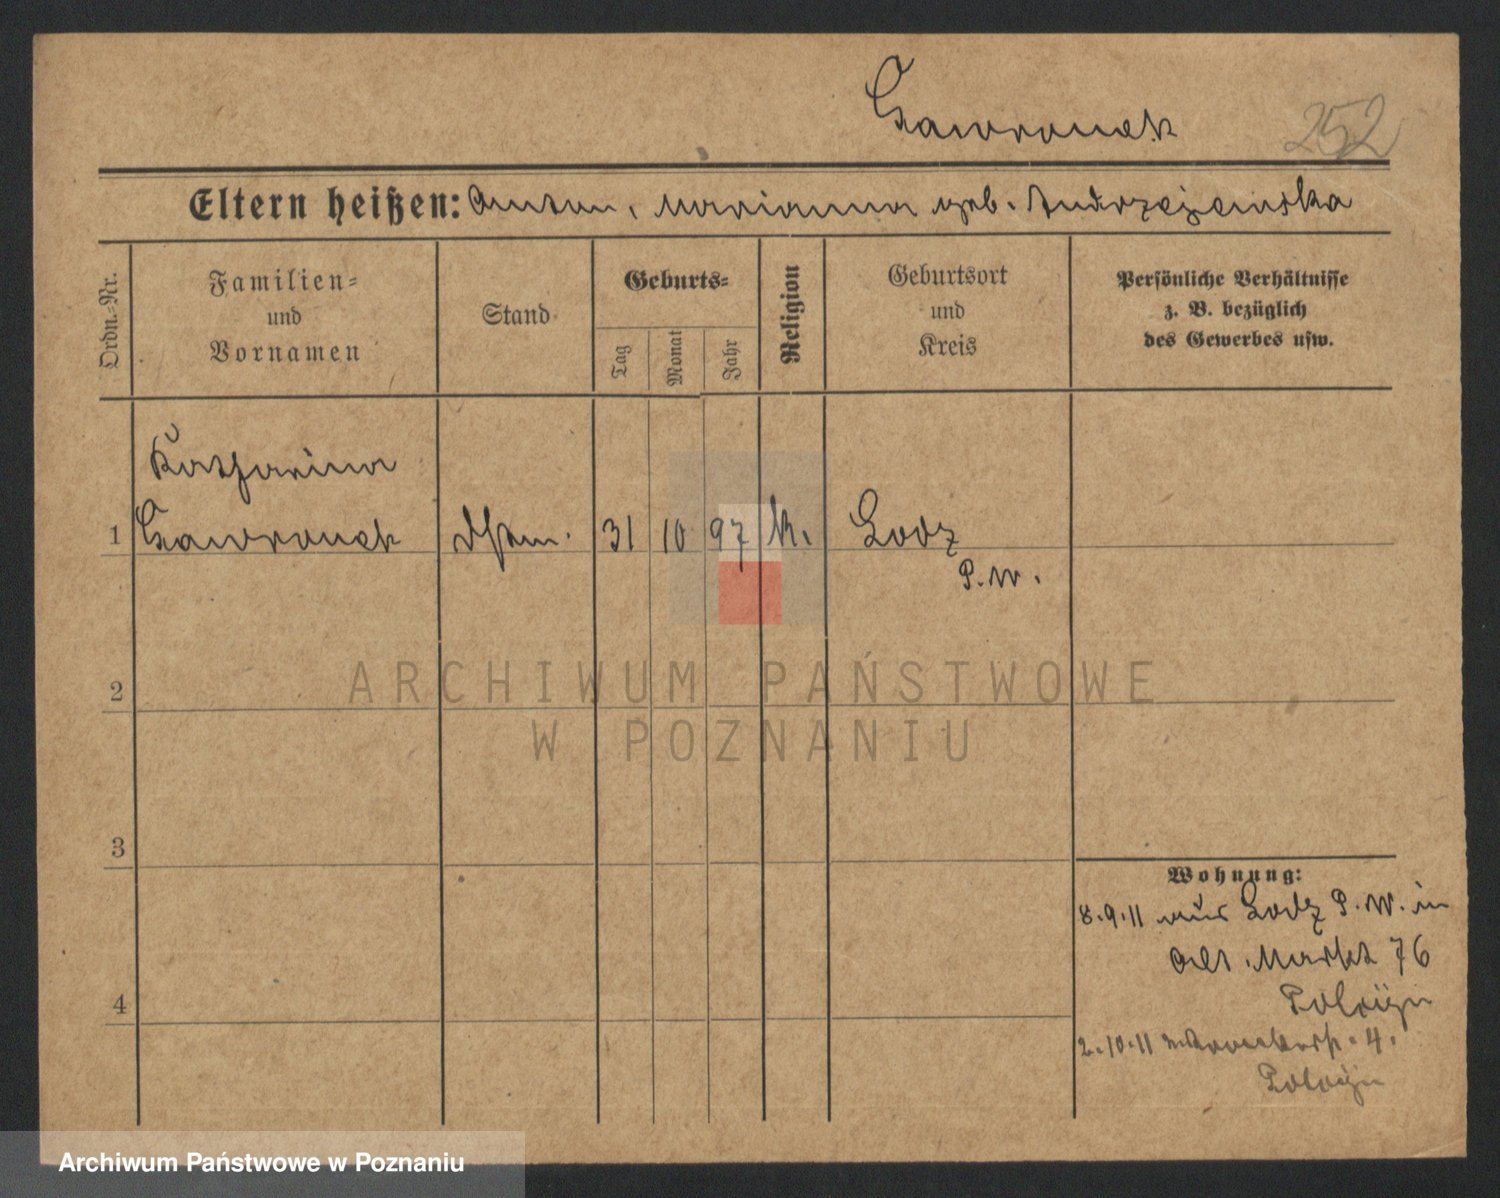 Gawronek
252
Eltern heißen: Anton, Marianna geb. Andrzejewska
Ordn.-Nr.
Familien- und Vornamen
Stand
Geburts-
Tag
Monat
Jahr
Religion
Geburtsort und Kreis
Persönliche Verhältnisse z. B. bezüglich des Gewerbes usw.
Katharina
1 Gawronek 31 10 97 k. Lodz
P.W.
2
ARCHIWUM PAŃSTWOWE
W POZNANIU
3
Wohnung:
8.9.11 aus Lodz P.W. in
Alt. Markt 76
4
2.10.11 4.
Archiwum Państwowe w Poznaniu